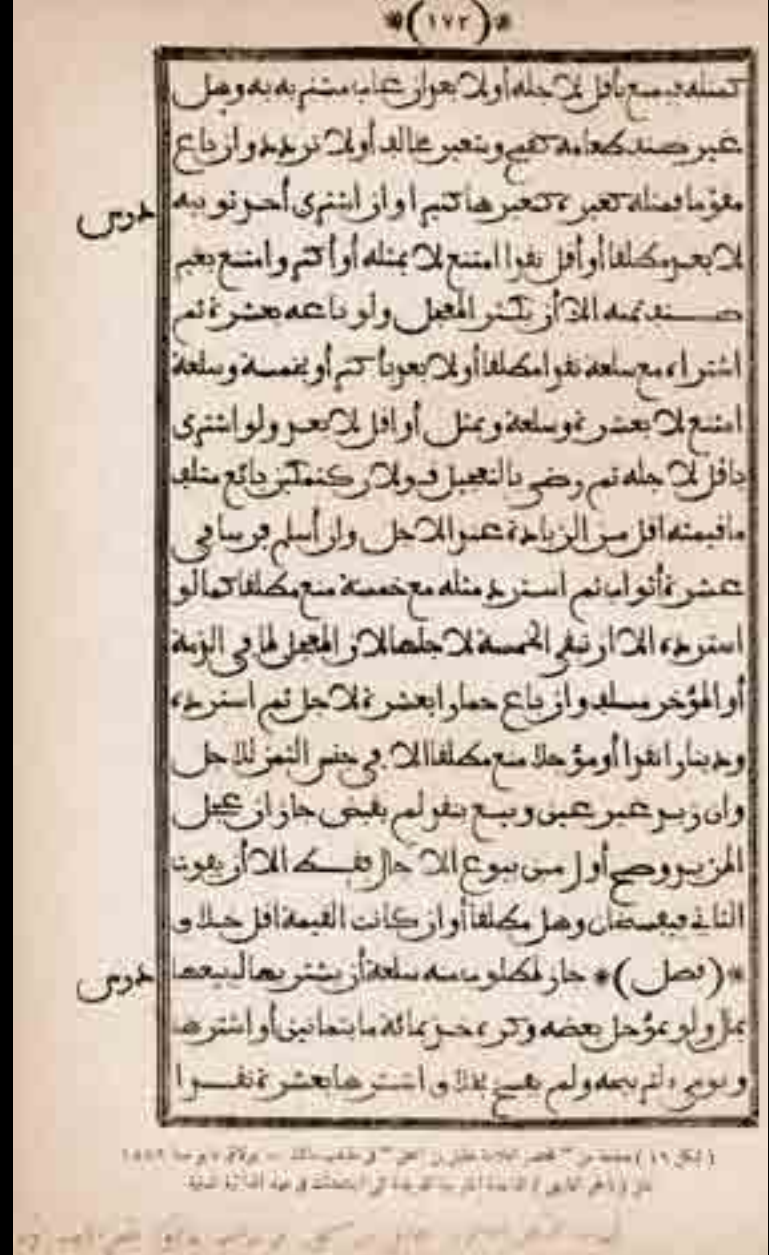 *(١٧٢)*
كمثله فيمنع بأقل لأجله أو لأبعد إن غاب مشتريه به وهل
غير صنف طعامه كقمح وشعير مخالف أو لا تردد وإن باع
مقوما فمثله كغيره كتغيرها كثيرا وإن اشترى أحد ثوبيه
درس
لأبعد مطلقا أو أقل نقدا امتنع لا بمثله أو أكثر وامتنع بغير
صنف ثمنه إلا أن يكثر المعجل ولو باعه بعشرة ثم
اشتراه مع سلعة نقدا مطلقا أو لأبعد بأكثر أو بخمسة وسلعة
امتنع لا بعشرة وسلعة وبمثل أو أقل لأبعد ولو اشترى
بأقل لأجله ثم رضي بالتعجيل قولان كتمكين بائع متلف
ما قيمته أقل من الزيادة عند الأجل وإن أسلم فرسا في
عشرة أثواب ثم استرد مثله مع خمسة منع مطلقا كما لو
استرده إلا أن تبقى الخمسة لأجلها لأن المعجل لما في الذمة
أو المؤخر مسلف وإن باع حمارا بعشرة لأجل ثم استرده
ودينارا نقدا أو مؤجلا منع مطلقا إلا في جنس الثمن للأجل
وإن زيد غير عين وبيع بنقد لم يقبض جاز إن عجل
المزيد وصح أول من بيوع الآجال فقط إلا أن يفوت
الثاني فيفسخان وهل مطلقا أو إن كانت القيمة أقل خلاف
*(فصل)* جاز لمطلوب منه سلعة أن يشتريها ليبيعها
درس
بمال ولو بمؤجل بعضه وكره خذ بمائة ما بثمانين أو اشترها
ويومي لتربيحه ولم يفسخ بخلاف اشترها بعشرة نقدا
(شكل ١٩) صفحة من "مختصر العلامة خليل بن إسحق" في مذهب مالك — بولاق